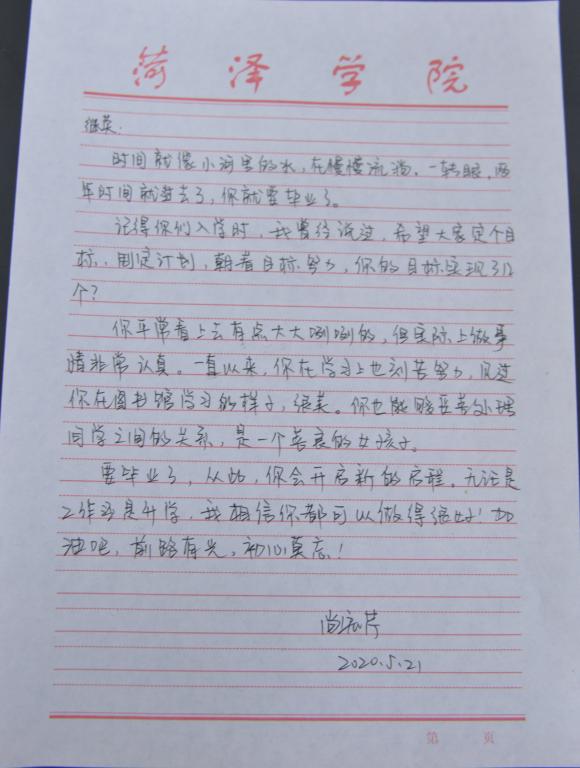 菏泽学院
继英：
时间就像小河里的水，在慢慢流淌。一转眼，两
年时间就过去了，你就要毕业了。
记得你们入学时，我曾经说过，希望大家定个目
标，制定计划，朝着目标努力，你的目标实现了几
个？
你平常看上去有点大大咧咧的，但实际上做事
情非常认真。一直以来，你在学习上也刻苦努力，见过
你在图书馆学习的样子，很美。你也能够妥善处理
同学之间的关系，是一个善良的女孩子。
要毕业了，从此，你会开启新的启程。无论是
工作还是升学，我相信你都可以做得很好！加
油吧，前路有光，初心莫忘！
尚
2020.5.21
第 页